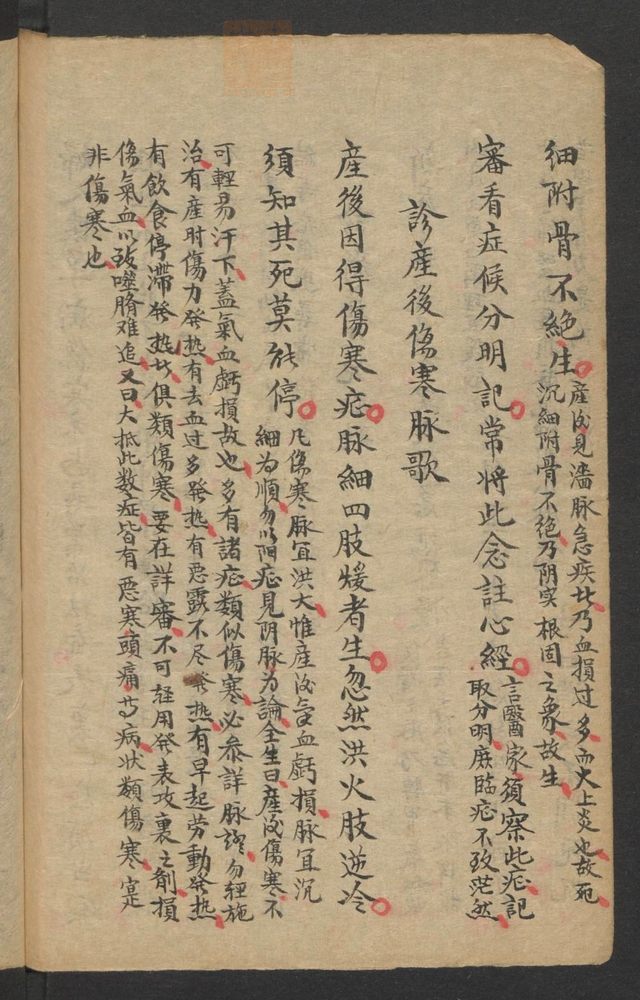 細附骨不絕生產後見濇脉急疾此乃血損过多而火上炎也故死
沉細附骨不絕乃阴实根固之象故生
審看症候分明記常將此念註心經言醫家須察此症記
取分明庶臨症不致茫然
診產後傷寒脉歌
產後因得傷寒症脉細四肢煖者生忽然洪火肢逆冷
須知其死莫能停凡傷寒脉宜洪大惟產後氣血虧損脉宜沉
細为順勿以陽症見阴脉为論全生曰產後傷寒不
可輕易汗下蓋氣血虧損故也多有諸症類似傷寒必叅詳脉證勿輕施
治有產时傷力發热有去血过多發热有恶露不尽發热有早起劳動發热
有飲食停滯發热此俱類傷寒要在詳審不可輕用發表攻裏之劑損
傷氣血以致噬臍难追又曰大抵此数症皆有恶寒頭痛等病状類傷寒寔
非傷寒也